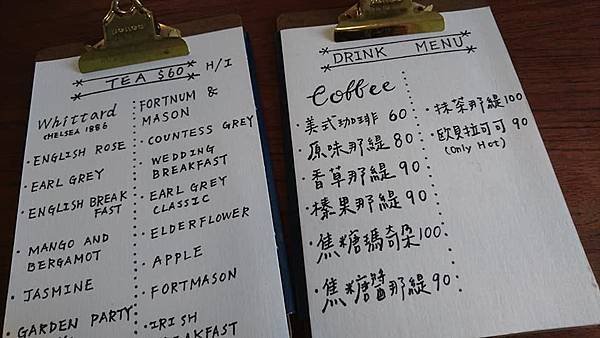 TEA $60 H/I
Whittard
CHELSEA 1886
·ENGLISH ROSE
·EARL GREY
·ENGLISH BREAK
FAST
·MANGO AND
BERGAMOT
·JASMINE
·GARDEN PARTY
FORTNUM &
MASON
·COUNTESS GREY
·WEDDING
BREAKFAST
·EARL GREY
CLASSIC
·ELDERFLOWER
·APPLE
·FORTMASON
·IRISH
BREAKFAST
DRINK MENU
Coffee
·美式珈琲 60
·原味那緹 80
·香草那緹 90
·榛果那緹 90
·焦糖瑪奇朵100
·焦糖醬那緹90
·抹茶那緹100
·歐貝拉可可 90
(Only Hot)